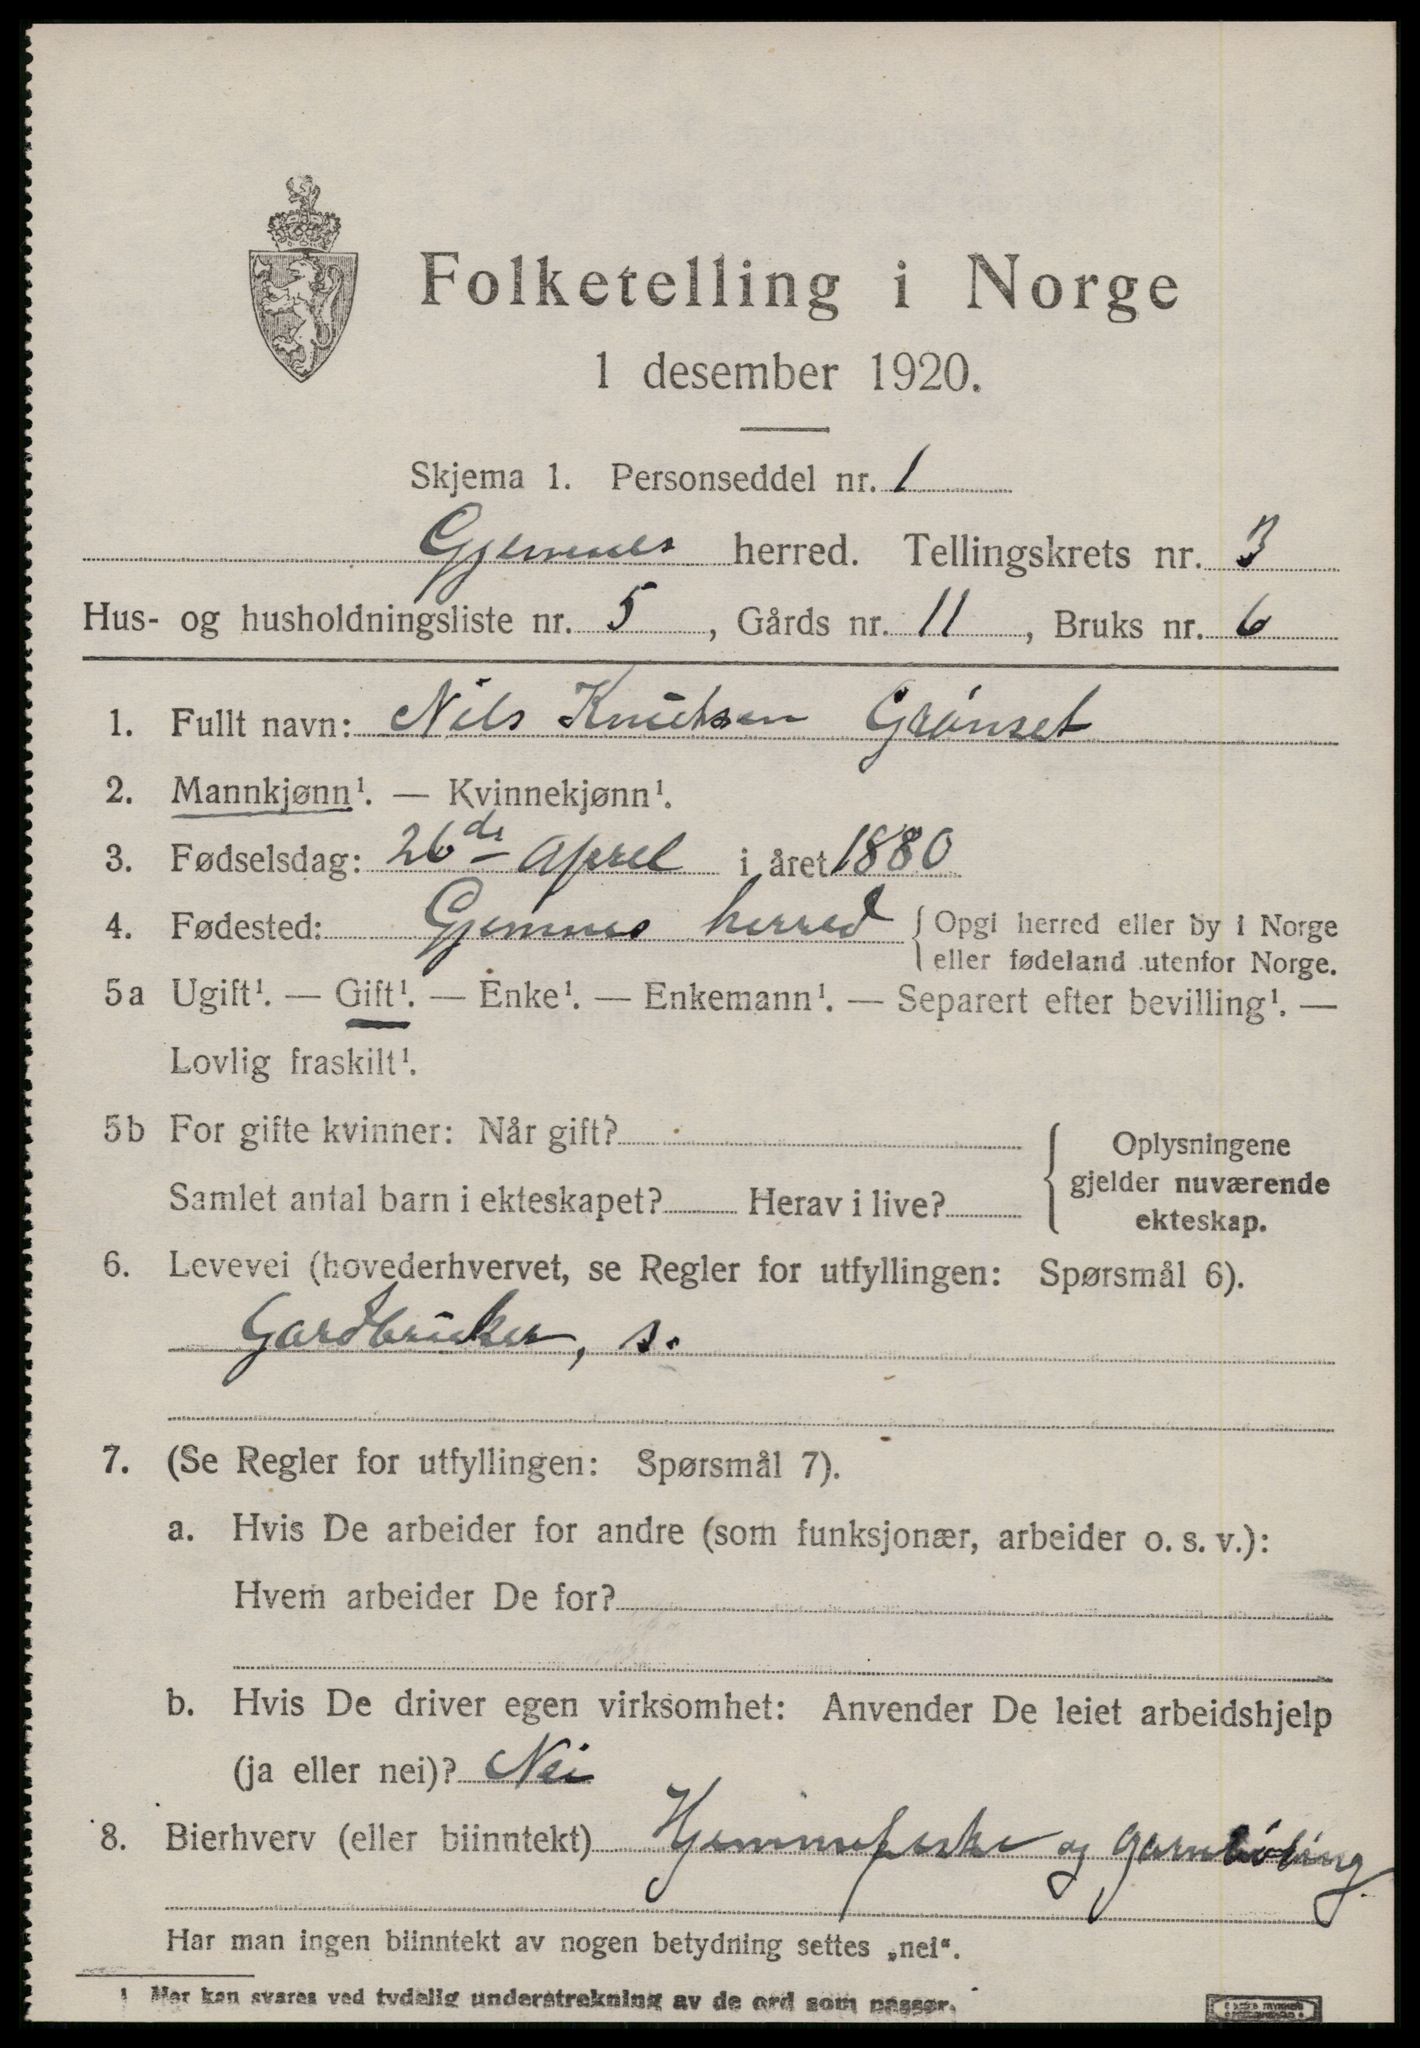 Folketelling i Norge
1 desember 1920.
Skjema 1. Personseddel nr. 1
Gjemnes herred. Tellingskrets nr. 3
Hus- og husholdningsliste nr. 5, Gårds nr. 11, Bruks nr. 6
1. Fullt navn: Nils Knutsen Grønset
2. Mannkjønn¹. — Kvinnekjønn¹.
3. Fødselsdag: 26de April i året 1880
4. Fødested: Gjemnes herred { Opgi herred eller by i Norge
eller fødeland utenfor Norge.
5a Ugift¹. — Gift¹. — Enke¹. — Enkemann¹. — Separert efter bevilling¹. —
Lovlig fraskilt¹.
5b For gifte kvinner: Når gift?
Samlet antal barn i ekteskapet? Herav i live?
Oplysningene
gjelder nuværende
ekteskap.
6. Levevei (hovederhvervet, se Regler for utfyllingen: Spørsmål 6).
Gardbruker, s.
7. (Se Regler for utfyllingen: Spørsmål 7).
a. Hvis De arbeider for andre (som funksjonær, arbeider o. s. v.):
Hvem arbeider De for?
b. Hvis De driver egen virksomhet: Anvender De leiet arbeidshjelp
(ja eller nei)? Nei
8. Bierhverv (eller biinntekt) Hjemmefiske og garnbøting
Har man ingen biinntekt av nogen betydning settes „nei“.
¹ Her kan svares ved tydelig understrekning av de ord som passer.